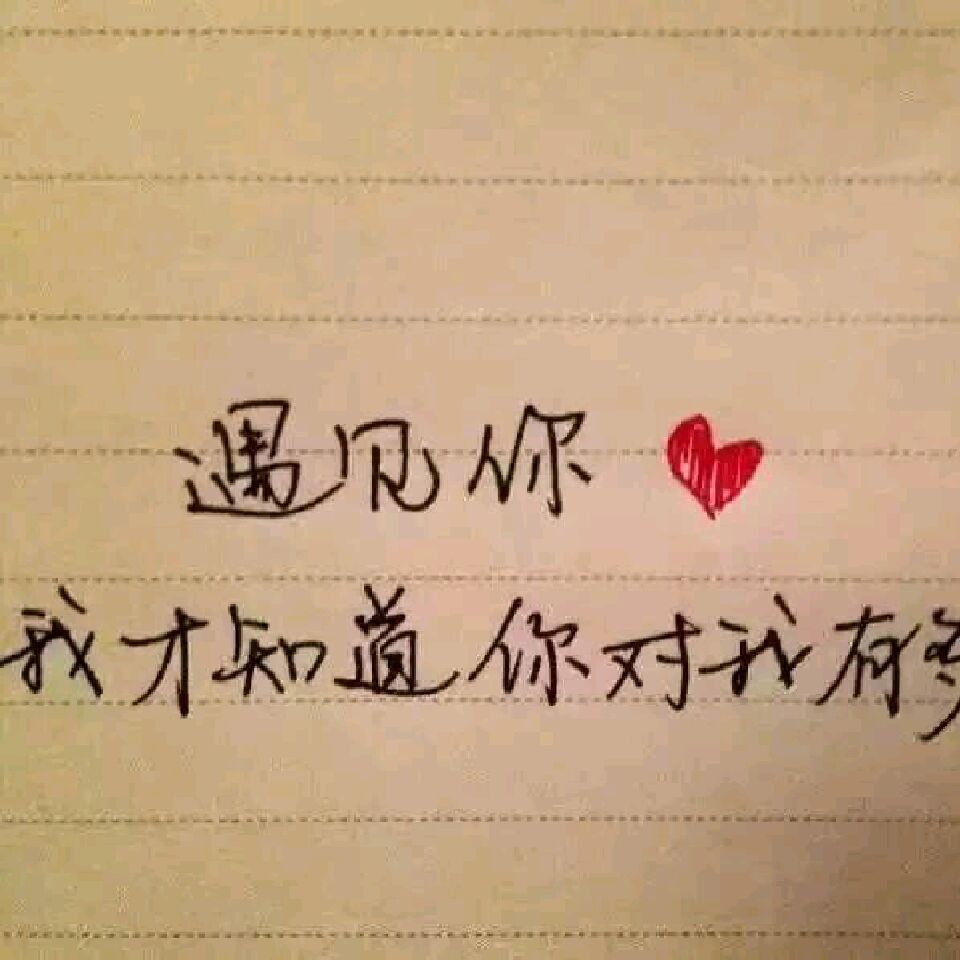 遇见你
我才知道你对我有多